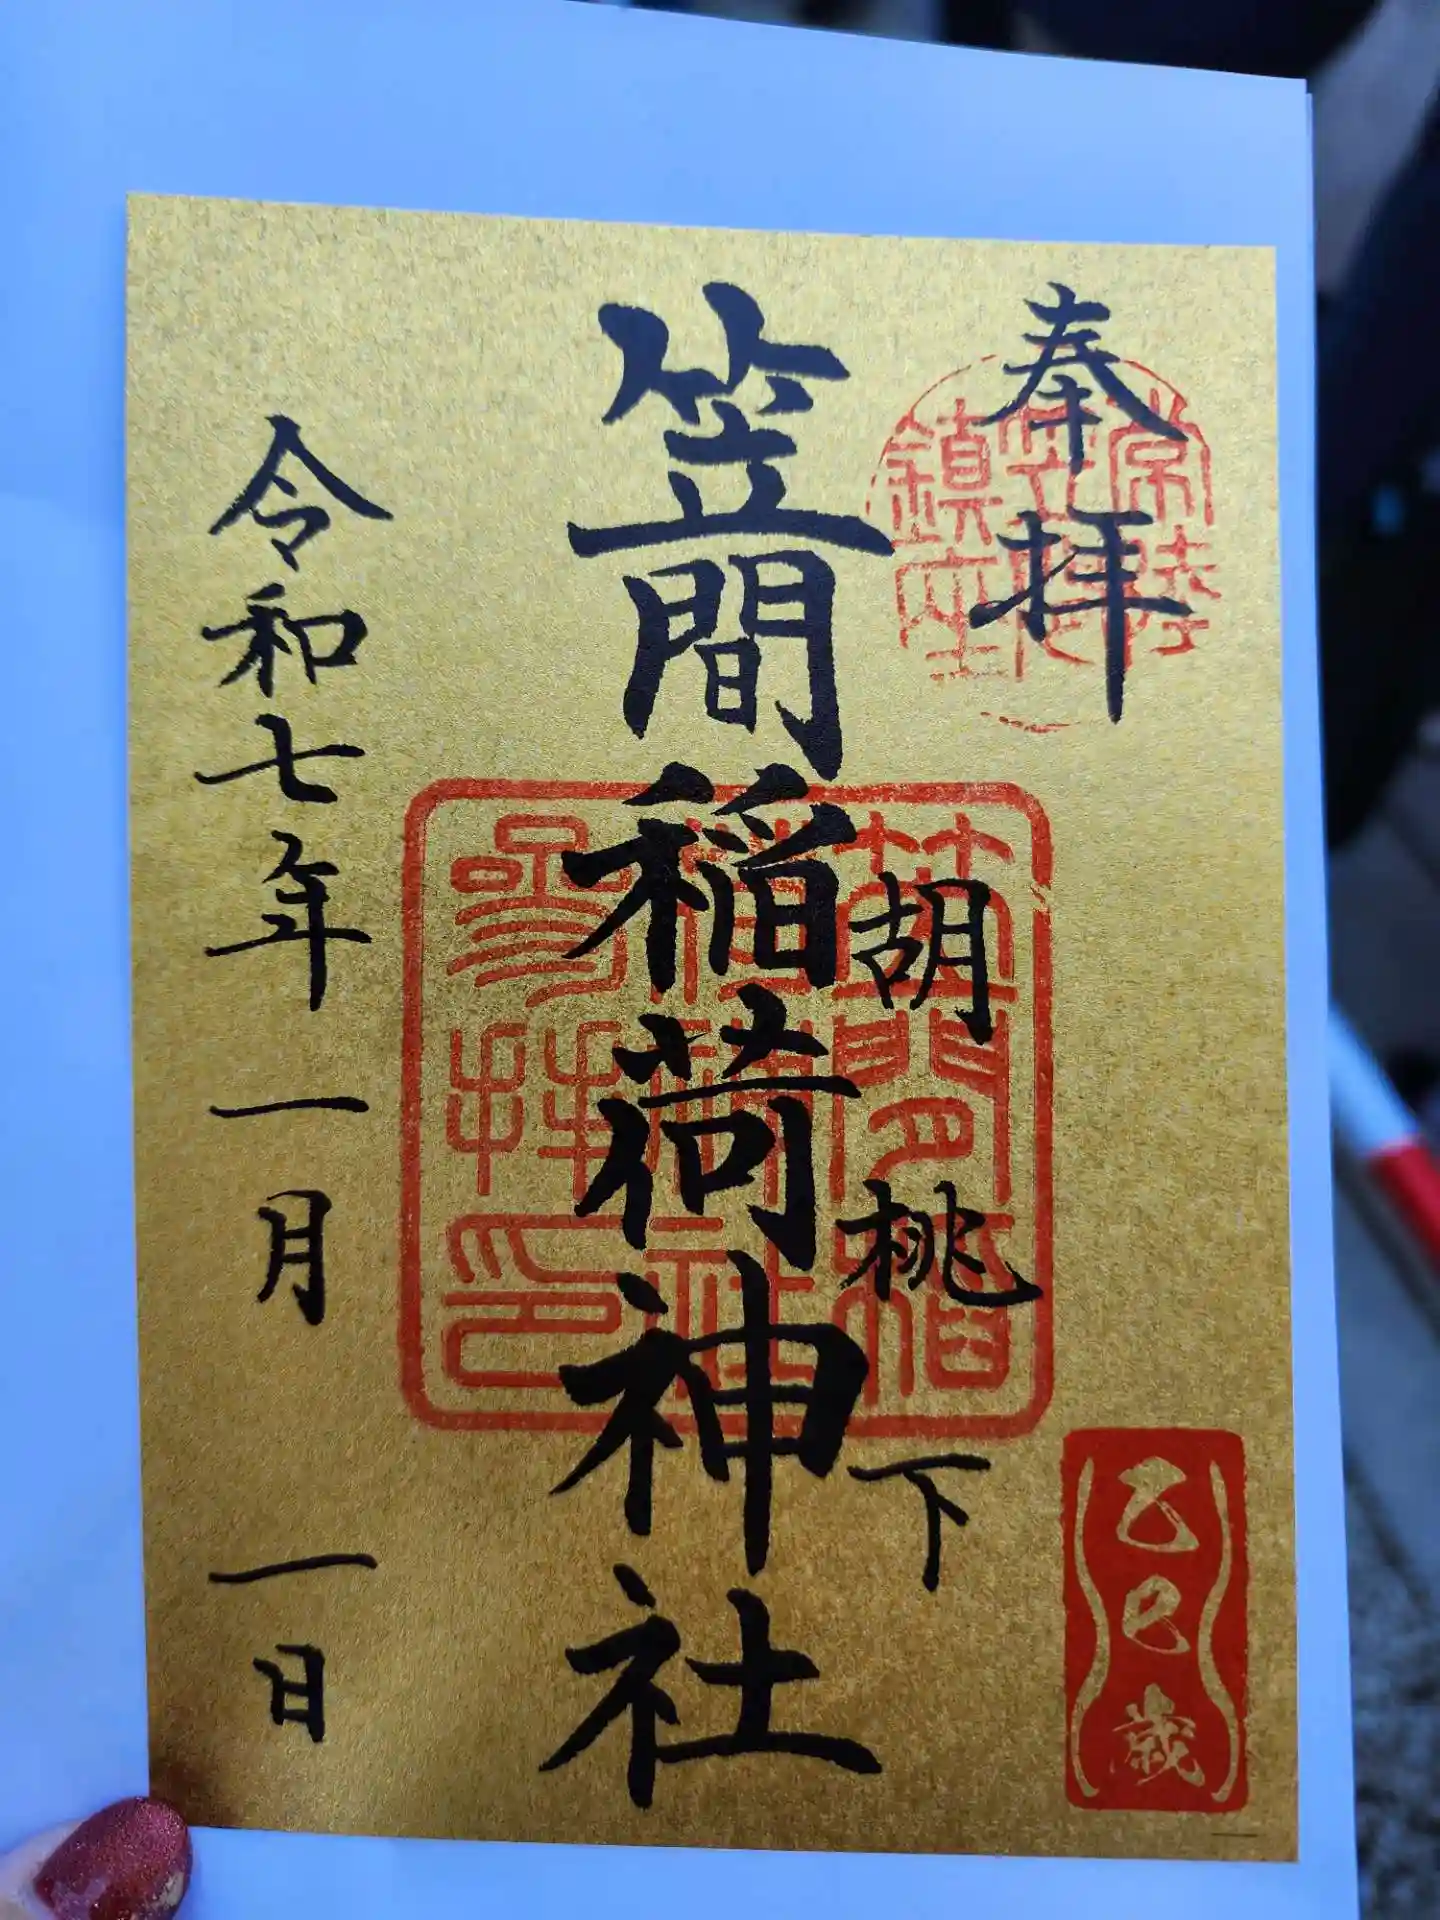 奉拝
常陸
笠間
鎮座
胡桃下
笠間稲荷神社
令和七年一月一日
乙巳歳